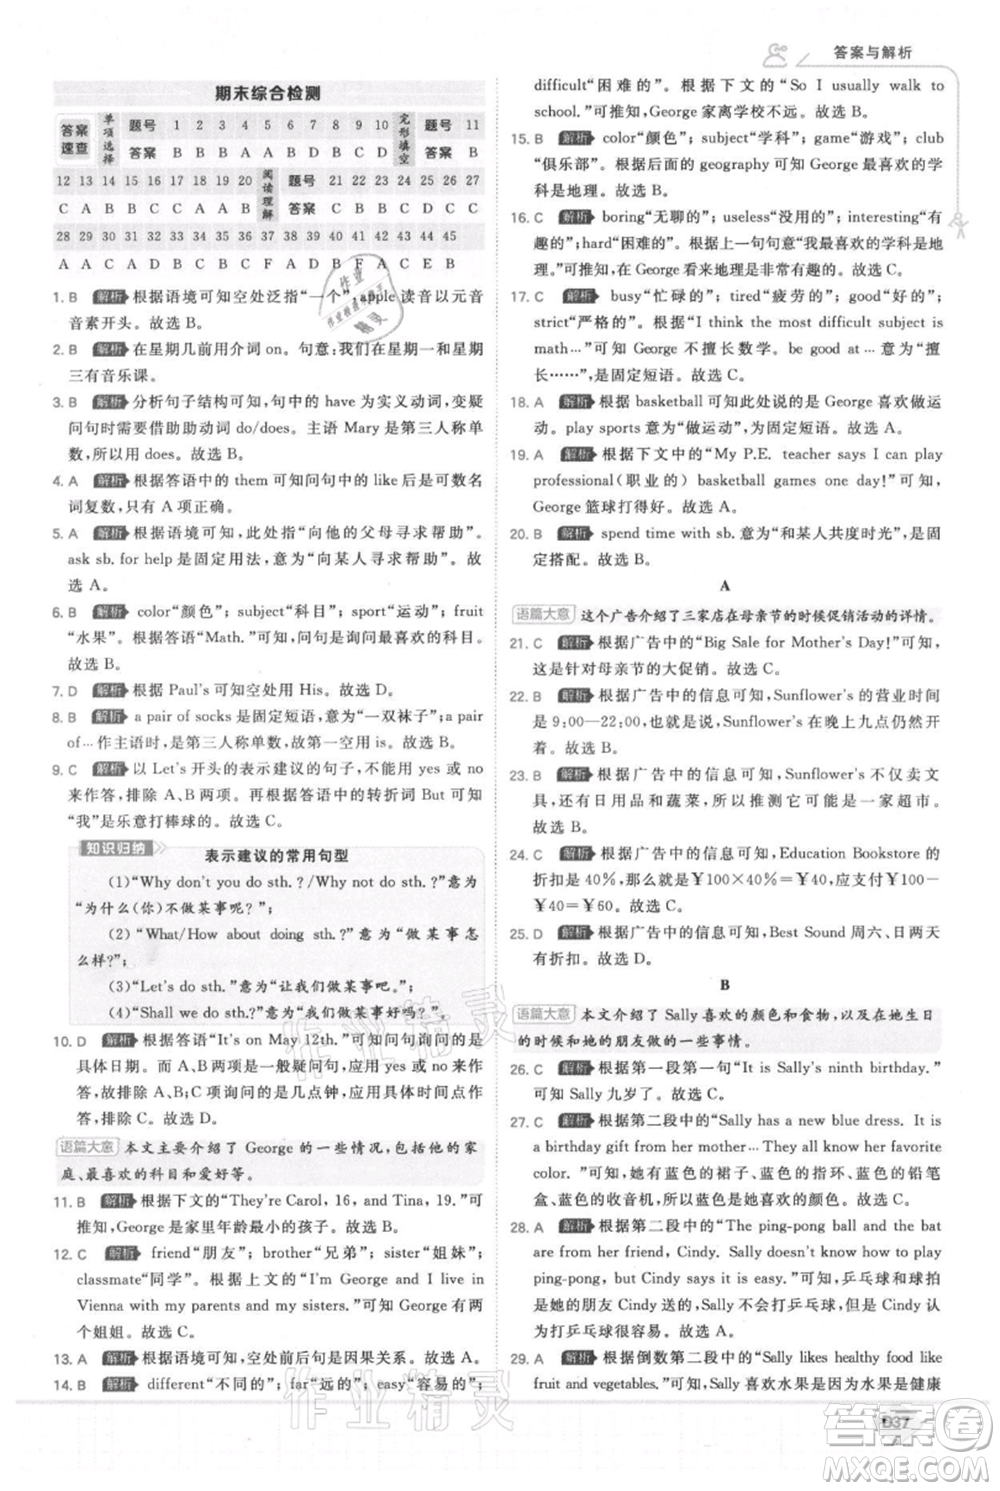 答案与解析
期末综合检测
答案速查 单项选择 题号 1 2 3 4 5 6 7 8 9 10 完形填空 题号 11
答案 B B B A A B D B C D 答案 B
12 13 14 15 16 17 18 19 20 阅读理解 题号 21 22 23 24 25 26 27
C A B B C C A A B 答案 C B B C D B C
28 29 30 31 32 33 34 35 36 37 38 39 40 41 42 43 44 45
1. B 解析 根据语境可知空处泛指“一个”,apple 读音以元音
音素开头。故选 B。
2. B 解析 在星期几前用介词 on。句意:我们在星期一和星期
三有音乐课。
3. B 解析 分析句子结构可知,句中的 have 为实义动词,变疑
问句时需要借助助动词 do/does。主语 Mary 是第三人称单
数,所以用 does。故选 B。
4. A 解析 根据答语中的 them 可知问句中的 like 后是可数名
词复数,只有 A 项正确。
5. A 解析 根据语境可知,此处指“向他的父母寻求帮助”。
ask sb. for help 是固定用法,意为“向某人寻求帮助”。故
选 A。
6. B 解析 color“颜色”; subject“科目”; sport“运动”; fruit
“水果”。根据答语“Math.”可知,问句是询问最喜欢的科目。
故选 B。
7. D 解析 根据 Paul's 可知空处用 His。故选 D。
8. B 解析 a pair of socks 是固定短语,意为“一双袜子”;a pair
of… 作主语时,是第三人称单数,故第一空用 is。故选 B。
9. C 解析 以 Let's 开头的表示建议的句子,不能用 yes 或 no
来作答,排除 A、B 两项。再根据答语中的转折词 But 可知
“我”是乐意打棒球的。故选 C。
知识归纳 表示建议的常用句型
(1)“Why don't you do sth. ?/Why not do sth. ?”意为
“为什么(你)不做某事呢?”;
(2) “What/How about doing sth. ?” 意为“做某事怎
么样?”;
(3)“Let's do sth.”意为“让我们做某事吧。”;
(4)“Shall we do sth. ?”意为“我们做某事好吗?”。
10. D 解析 根据答语“It's on May 12th.”可知问句询问的是
具体日期。而 A、B 两项是一般疑问句,不能用具体时间作
答,排除 A、B;C 项询问的是几点钟,也不能用具体日期作
答,排除 C。故选 D。
语篇大意 本文主要介绍了 George 的一些情况,包括他的家
庭、最喜欢的科目和爱好等。
11. B 解析 根据下文的“They're Carol, 16, and Tina, 19.”可
推知,George 是家里年龄最小的孩子。故选 B。
12. C 解析 friend“朋友”; brother“兄弟”; sister“姐妹”;
classmate“同学”。根据上文的“I'm George and I live in
Vienna with my parents and my sisters.”可知 George 有两
个姐姐。故选 C。
13. A 解析 根据语境可知,空处前后句是因果关系。故选 A。
14. B 解析 different“不同的”; far“远的”; easy“容易的”;
difficult“困难的”。根据下文的“So I usually walk to
school.”可推知,George 家离学校不远。故选 B。
15. B 解析 color“颜色”; subject“学科”; game“游戏”; club
“俱乐部”。根据后面的 geography 可知 George 最喜欢的学
科是地理。故选 B。
16. C 解析 boring“无聊的”; useless“没用的”; interesting“有
趣的”;hard“困难的”。根据上一句句意“我最喜欢的学科是地
理。”可知,在 George 看来地理是非常有趣的。故选 C。
17. C 解析 busy“忙碌的”; tired“疲劳的”; good“好的”;
strict“严格的”。根据“I think the most difficult subject is
math…”可以推知,George 不擅长数学。be good at 意为“擅
长……”,是固定短语。故选 C。
18. A 解析 根据 basketball 可知此处说的是 George 喜欢做运
动。play sports 意为“做运动”,为固定短语。故选 A。
19. A 解析 根据下文中的“My P.E. teacher says I can play
professional(职业的) basketball games one day!”可知,
George 篮球打得好。故选 A。
20. B 解析 spend time with sb. 意为“和某人共度时光”,是固
定搭配。故选 B。
A
语篇大意 这个广告介绍了三家店在母亲节的时候促销活动的详情。
21. C 解析 根据广告中的“Big Sale for Mother's Day!”可知,
这是针对母亲节的大促销。故选 C。
22. B 解析 根据广告中的信息可知,Sunflower's 的营业时间
是 9:00—22:00,也就是说,Sunflower's 在晚上九点仍然开
着。故选 B。
23. B 解析 根据广告中的信息可知,Sunflower's 不仅卖文
具,还卖日用品和蔬菜,所以推测它可能是一家超市。
故选 B。
24. C 解析 根据广告中的信息可知,Education Bookstore 的
折扣是 40%,那么¥100×40%=¥40,应支付¥100-
¥40=¥60。故选 C。
25. D 解析 根据广告中的信息可知,Best Sound 周六、日两天
有折扣。故选 D。
B
语篇大意 本文介绍了 Sally 喜欢的颜色和食物,以及在她生日
的时候和她的朋友做的一些事情。
26. B 解析 根据第一段第一句“It is Sally's ninth birthday.”
可知 Sally 九岁了。故选 B。
27. C 解析 根据第二段中的“Sally has a new blue dress. It is
a birthday gift from her mother… They all know her favorite
color.”可知,她有蓝色的裙子、蓝色的指环、蓝色的铅笔
盒、蓝色的收音机,所以蓝色是她喜欢的颜色。故选 C。
28. A 解析 根据第二段中的“The ping-pong ball and the bat
are from her friend, Cindy. Sally doesn't know how to play
ping-pong, but Cindy says it is easy.”可知,乒乓球和球拍
是她的朋友 Cindy 送的,Sally 不会打乒乓球,但 Cindy 说
打乒乓球很容易。故选 A。
29. A 解析 根据倒数第二段中的“Sally likes healthy food like
fruit and vegetables.”可知,Sally 喜欢水果和蔬菜这样的健康
D37
作业精灵
作业精灵
答案卷
MXQE.COM